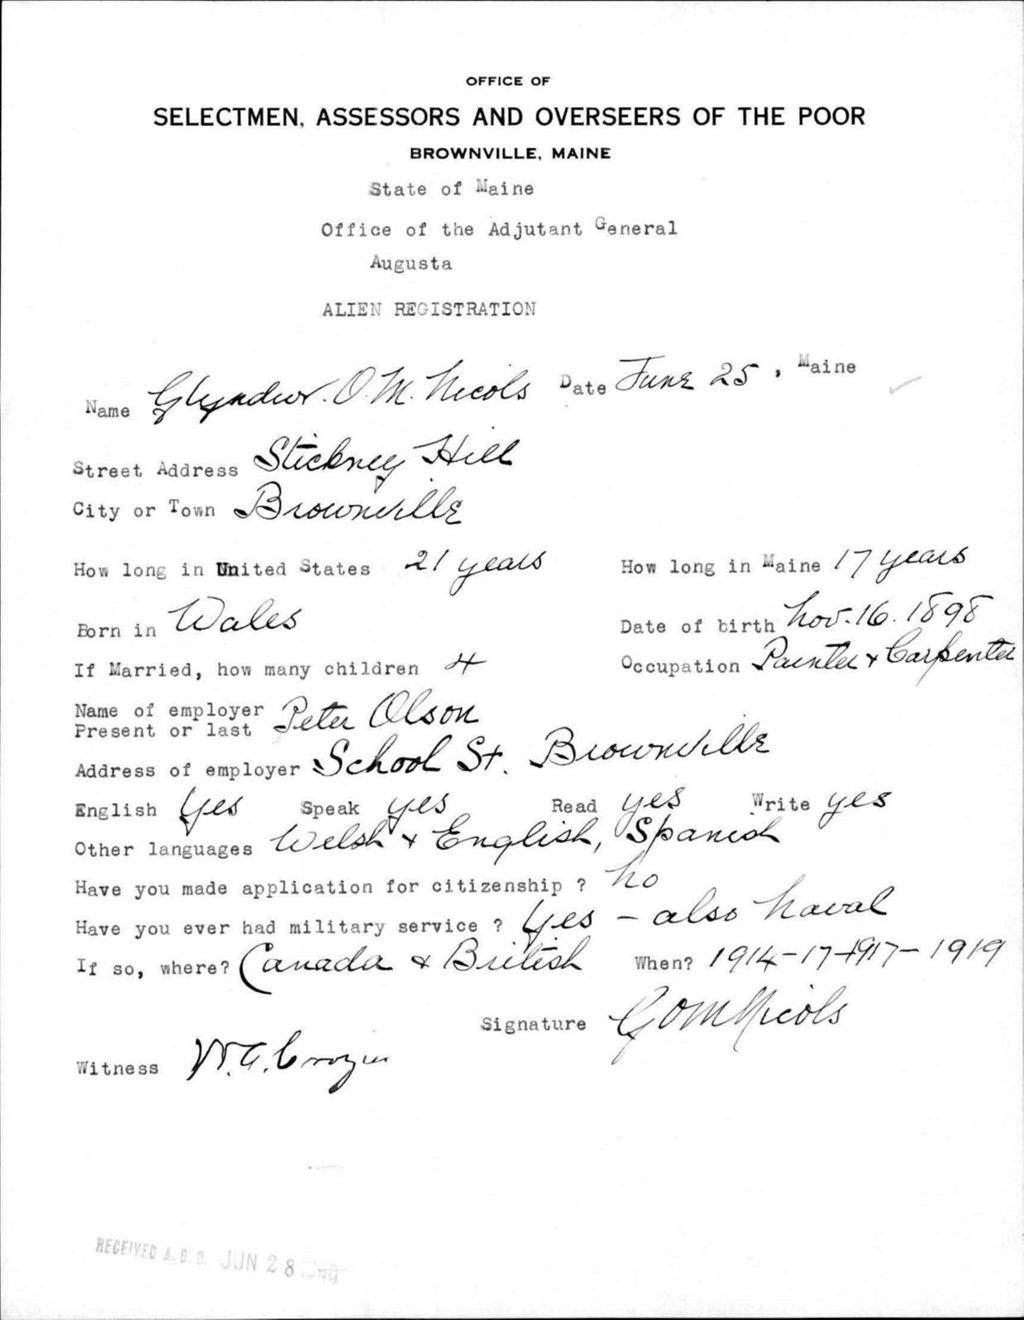 OFFICE OF
SELECTMEN, ASSESSORS AND OVERSEERS OF THE POOR
BROWNVILLE, MAINE
State of Maine
Office of the Adjutant General
Augusta
ALIEN REGISTRATION
Name Glyndwr. O. M. Nicols Date June 25, Maine
Street Address Stickney Hill
City or Town Brownville
How long in United States 21 years How long in Maine 17 years
Born in Wales Date of birth Nov. 16. 1898
If Married, how many children 4 Occupation Painter & Carpenter
Name of employer Peter Olson
Present or last
Address of employer School St. Brownville
English Yes Speak yes Read yes Write yes
Other languages Welsh & English, Spanish
Have you made application for citizenship ? No
Have you ever had military service ? Yes - also Naval
If so, where? Canada & British When? 1914-17-1917-1919
Signature G O M Nicols
Witness W.A.
RECEIVED A.G.O. JUN 28 1940